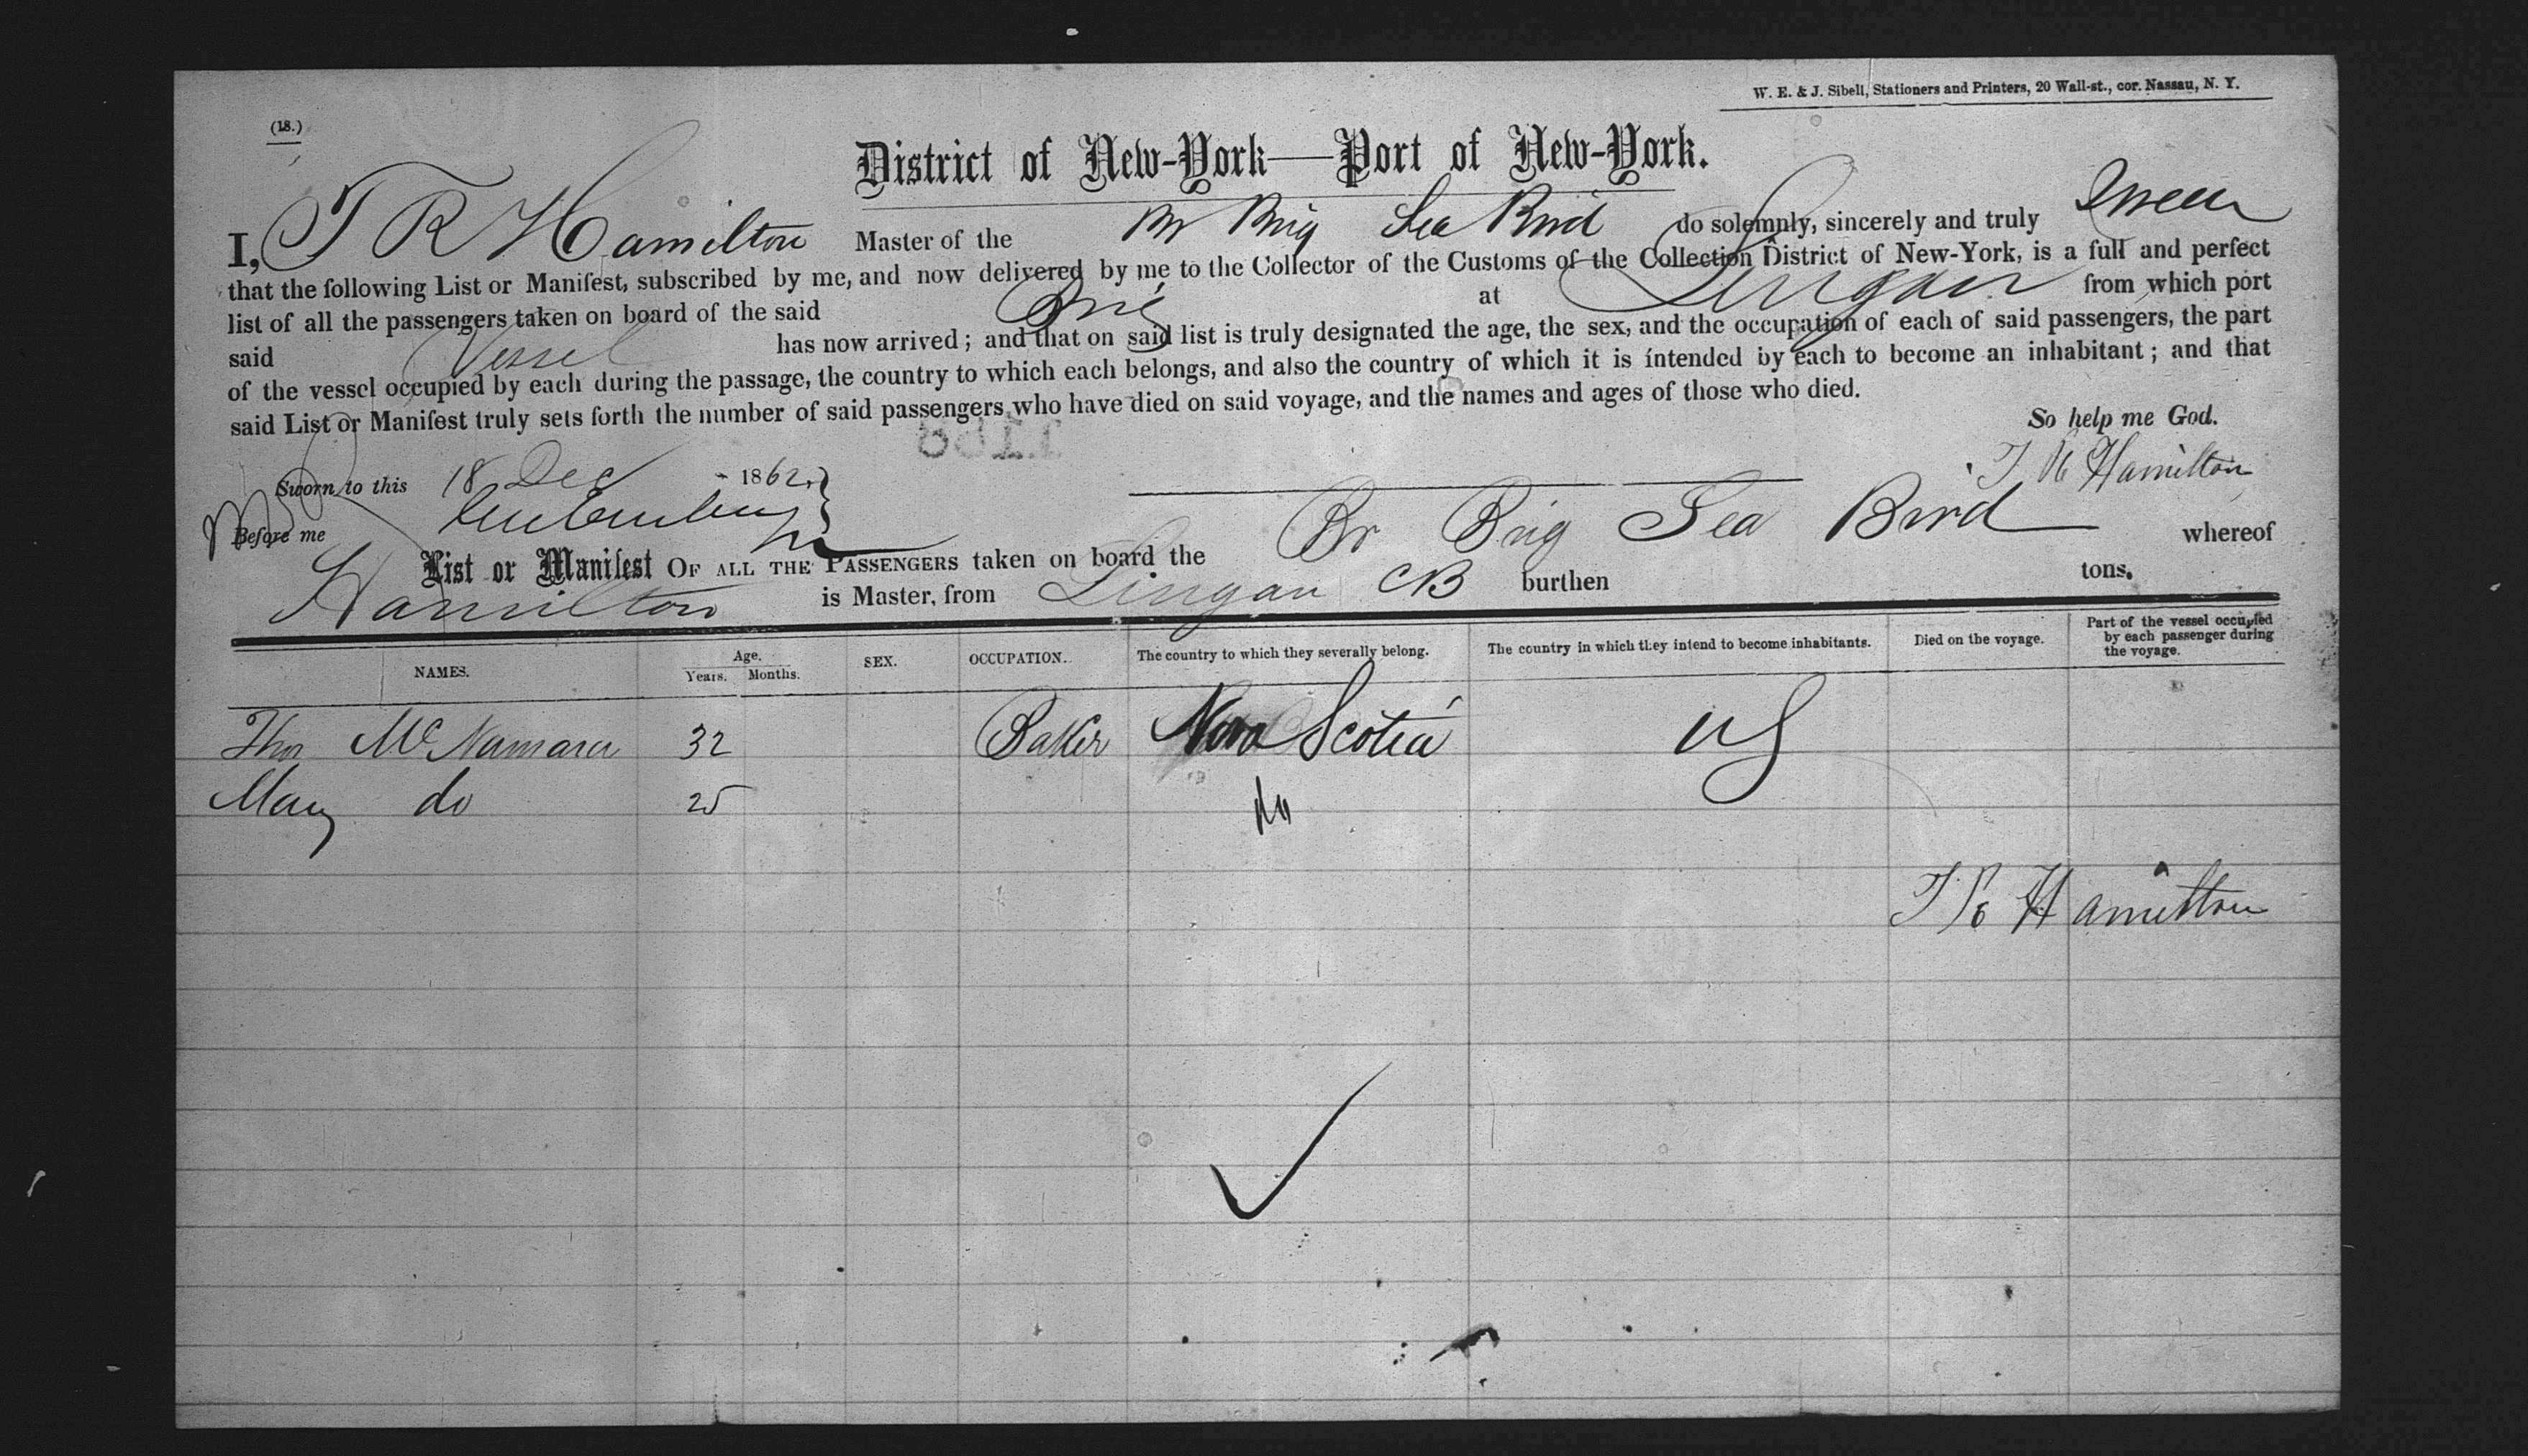 W. E. & J. Sibell, Stationers and Printers, 20 Wall-st., cor. Nassau, N. Y.
(18.)
District of New-York—Port of New-York.
I, T R Hamilton Master of the Br Brig Sea Bird do solemnly, sincerely and truly Swear
that the following List or Manifest, subscribed by me, and now delivered by me to the Collector of the Customs of the Collection District of New-York, is a full and perfect
list of all the passengers taken on board of the said Brig at Lingan from which port
said Vessel has now arrived; and that on said list is truly designated the age, the sex, and the occupation of each of said passengers, the part
of the vessel occupied by each during the passage, the country to which each belongs, and also the country of which it is intended by each to become an inhabitant; and that
said List or Manifest truly sets forth the number of said passengers who have died on said voyage, and the names and ages of those who died.
So help me God.
Sworn to this 18 Dec 1862. T R Hamilton
Before me
List or Manifest OF ALL THE PASSENGERS taken on board the Br Brig Sea Bird whereof
Hamilton is Master, from Lingan CB burthen tons.
NAMES. Age. Years. Months. SEX. OCCUPATION. The country to which they severally belong. The country in which they intend to become inhabitants. Died on the voyage. Part of the vessel occupied by each passenger during the voyage.
Thos McNamara 32 Baker Nova Scotia US
Mary do 25 do
T R Hamilton